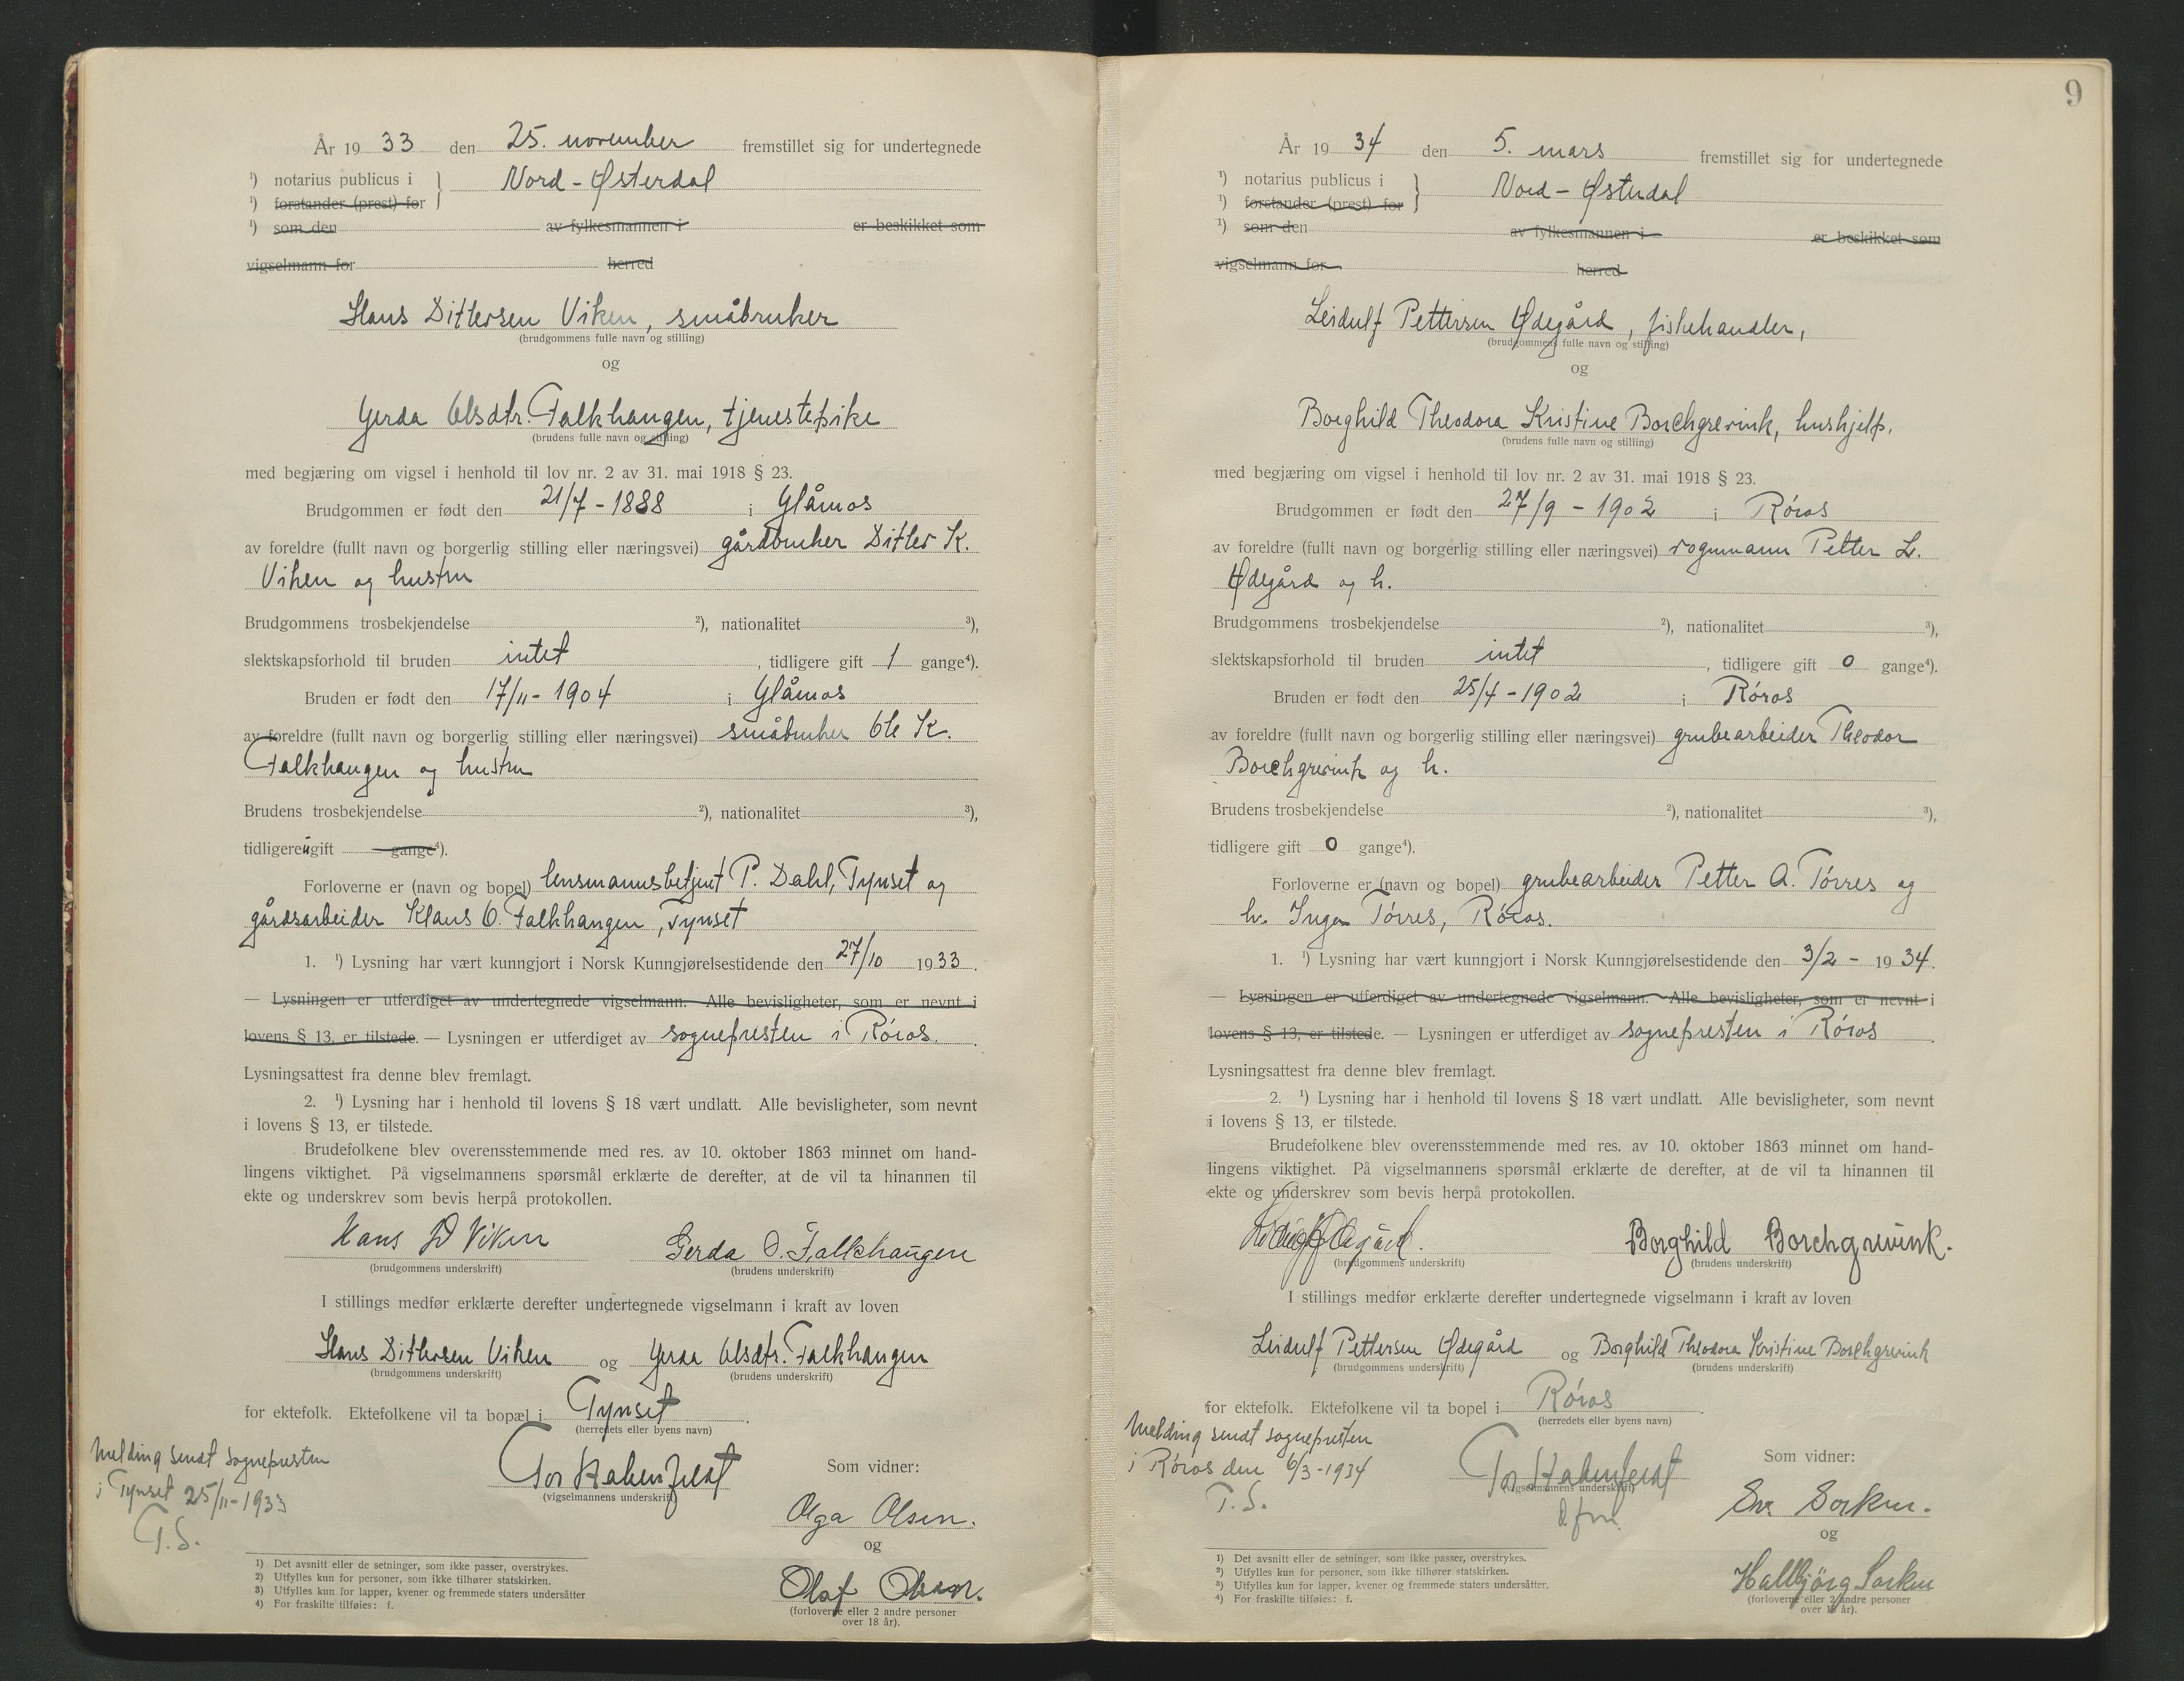 År 1933 den 25. november fremstillet sig for undertegnede
¹) notarius publicus i } Nord-Østerdal
¹) forstander (prest) for
¹) som den av fylkesmannen i er beskikket som
vigselmann for herred
Hans Ditlevsen Viken, småbruker
(brudgommens fulle navn og stilling)
og
Gerda Olsdtr. Falkhaugen, tjenestepike
(brudens fulle navn og stilling)
med begjæring om vigsel i henhold til lov nr. 2 av 31. mai 1918 § 23.
Brudgommen er født den 21/7-1888 i Glåmos
av foreldre (fullt navn og borgerlig stilling eller næringsvei) gårdbruker Ditlev K.
Viken og hustru
Brudgommens trosbekjendelse ²), nationalitet ³),
slektskapsforhold til bruden intet, tidligere gift 1 gange⁴).
Bruden er født den 17/11-1904 i Glåmos
av foreldre (fullt navn og borgerlig stilling eller næringsvei) småbruker Ole K.
Falkhaugen og hustru
Brudens trosbekjendelse ²), nationalitet ³),
tidligere ugift gange⁴).
Forloverne er (navn og bopel) lensmannsbetjent P. Dahl, Tynset og
gårdsarbeider Klaus O. Falkhaugen, Tynset
1. ¹) Lysning har vært kunngjort i Norsk Kunngjørelsestidende den 27/10 1933.
— Lysningen er utferdiget av undertegnede vigselmann. Alle bevisligheter, som er nevnt i
lovens § 13, er tilstede. — Lysningen er utferdiget av sognepresten i Röros.
Lysningsattest fra denne blev fremlagt.
2. ¹) Lysning har i henhold til lovens § 18 vært undlatt. Alle bevisligheter, som nevnt
i lovens § 13, er tilstede.
Brudefolkene blev overensstemmende med res. av 10. oktober 1863 minnet om hand-
lingens viktighet. På vigselmannens spørsmål erklærte de derefter, at de vil ta hinannen til
ekte og underskrev som bevis herpå protokollen.
Hans D Viken Gerda O. Falkhaugen
(brudgommens underskrift) (brudens underskrift)
I stillings medfør erklærte derefter undertegnede vigselmann i kraft av loven
Hans Ditlevsen Viken og Gerda Olsdtr. Falkhaugen
(brudgommens underskrift) (brudens underskrift)
for ektefolk. Ektefolkene vil ta bopæl i Tynset.
(herredets eller byens navn)
Melding sendt sognepresten
i Tynset 25/11-1933
T.S.
Tor
(vigselmannens underskrift)
Som vidner:
Olga Olsen.
og
Olaf Olsen.
(forloverne eller 2 andre personer
over 18 år).
1) Det avsnitt eller de setninger, som ikke passer, overstrykes.
2) Utfylles kun for personer, som ikke tilhører statskirken.
3) Utfylles kun for lapper, kvener og fremmede staters undersåtter
4) For fraskilte tilføies: f.
9
År 1934 den 5. mars fremstillet sig for undertegnede
¹) notarius publicus i } Nord-Østerdal
¹) forstander (prest) for
¹) som den av fylkesmannen i er beskikket som
vigselmann for herred
Leidulf Pettersen Ødegård, fiskehandler,
(brudgommens fulle navn og stilling)
og
Borghild Theodora Kristine Borchgrevink, hushjelp.
(brudens fulle navn og stilling)
med begjæring om vigsel i henhold til lov nr. 2 av 31. mai 1918 § 23.
Brudgommen er født den 27/9-1902 i Röros
av foreldre (fullt navn og borgerlig stilling eller næringsvei) vognmann Petter L.
Ødegård og h.
Brudgommens trosbekjendelse ²), nationalitet ³),
slektskapsforhold til bruden intet, tidligere gift 0 gange⁴).
Bruden er født den 25/4-1902 i Röros
av foreldre (fullt navn og borgerlig stilling eller næringsvei) grubearbeider Theodor
Borchgrevink og h.
Brudens trosbekjendelse ²), nationalitet ³),
tidligere gift 0 gange⁴).
Forloverne er (navn og bopel) grubearbeider Petter A. Törres og
h. Inga Törres, Röros.
1. ¹) Lysning har vært kunngjort i Norsk Kunngjørelsestidende den 3/2- 1934.
— Lysningen er utferdiget av undertegnede vigselmann. Alle bevisligheter, som er nevnt i
lovens § 13, er tilstede. — Lysningen er utferdiget av sognepresten i Röros.
Lysningsattest fra denne blev fremlagt.
2. ¹) Lysning har i henhold til lovens § 18 vært undlatt. Alle bevisligheter, som nevnt
i lovens § 13, er tilstede.
Brudefolkene blev overensstemmende med res. av 10. oktober 1863 minnet om hand-
lingens viktighet. På vigselmannens spørsmål erklærte de derefter, at de vil ta hinannen til
ekte og underskrev som bevis herpå protokollen.
Leidulf Ødegård. Borghild Borchgrevink.
(brudgommens underskrift) (brudens underskrift)
I stillings medfør erklærte derefter undertegnede vigselmann i kraft av loven
Leidulf Pettersen Ødegård og Borghild Theodora Kristine Borchgrevink
(brudgommens underskrift) (brudens underskrift)
for ektefolk. Ektefolkene vil ta bopel i Röros.
(herredets eller byens navn)
Melding sendt sognepresten
i Röros den 6/3-1934
T.S.
Tor
(vigselmannens underskrift)
Som vidner:
Sorken.
og
Hallbjörg Sorken
(forloverne eller 2 andre personer
over 18 år).
¹) Det avsnitt eller de setninger, som ikke passer, overstrykes.
²) Utfylles kun for personer, som ikke tilhører statskirken.
³) Utfylles kun for lapper, kvener og fremmede staters undersåtter.
⁴) For fraskilte tilføies: f.